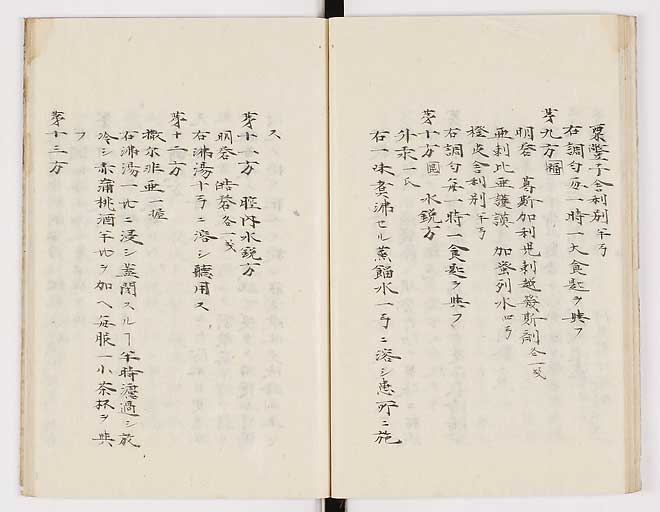 罌粟子舎利別 半弓
右調匀每一時一大食匙ヲ與フ
第九方
明礬 葛斯加利兒剌越幾斯剤 各一戔
亜剌比亜護謨 加蜜列水 四弓
橙皮舎利別 半弓
右調匀每一時一食匙ヲ與フ
第十方 水銃方
外汞一氏
右一味煑沸セル蒸餾水一弓ニ溶シ患所ニ施
ス
第十一方 膣内水銃方
明礬 皓礬 各一戔
右沸湯十弓ニ溶シ聴用ス
第十二方
撒尓非亜 一握
右沸湯一 ニ浸シ蓋閉スルヿ半時濾過シ放
冷シ赤蒲桃酒半 ヲ加ヘ每服一小茶杯ヲ與
フ
第十三方